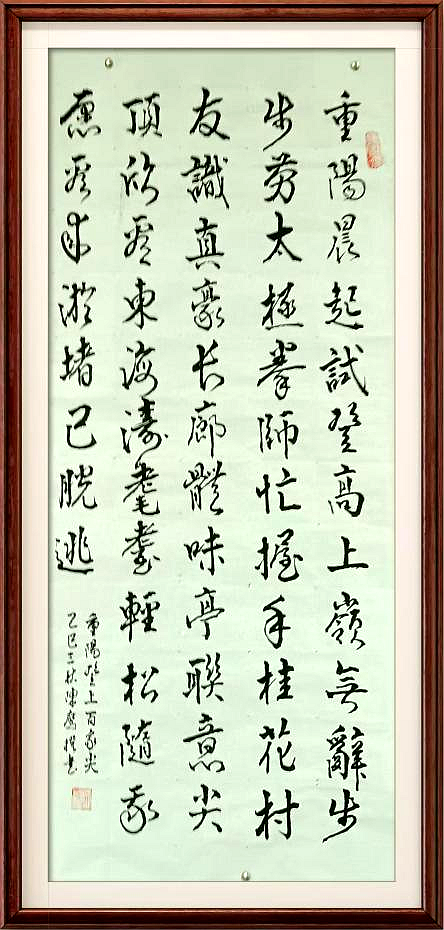 重陽晨起試登高上嶺無辭步
步勞太極拳師忙握手桂花村
友識真豪长廊體味亭聯意尖
頂欣看東海濤耄耋輕松隨我
愿看來淤堵已脫逃
重陽登上百家尖
乙巳秋陳書